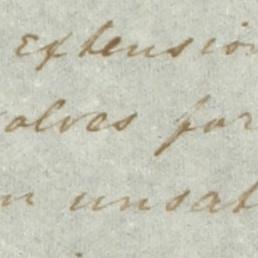 extension
olves for
unsat